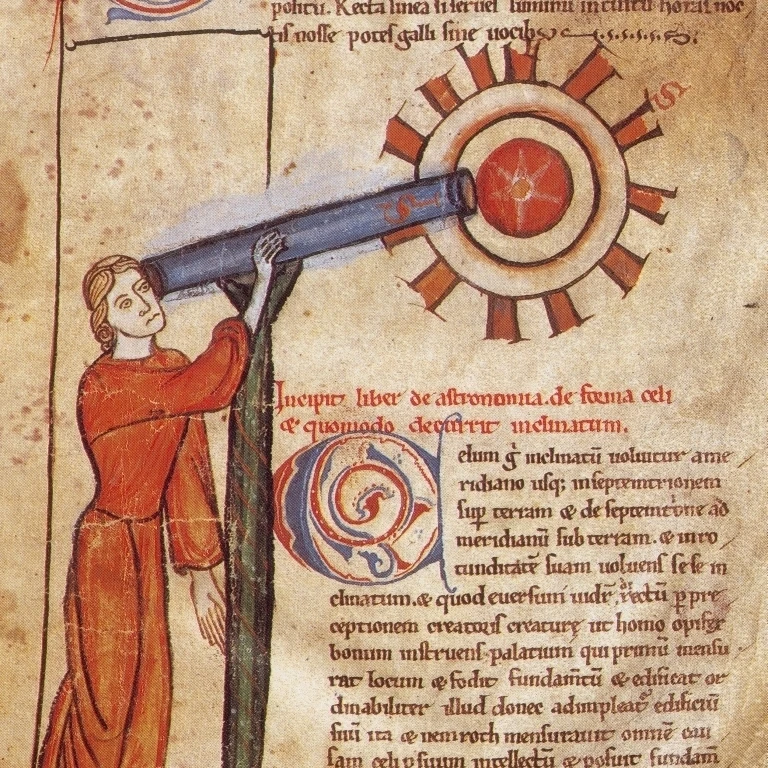 politu. Recta linea si seruet luminu intuitu horas noc
tis nosse potes galli sine uocib;
Incipit liber de astronomia. de forma celi
& quomodo decurrit inclinatum.
Celum g̃ inclinatū uoluitur a me
ridiano usq; in septemtrionem
sup̱ terram & de septemtrione ad
meridianū sub terram. & in ro
tunditatē suam uoluens se se in
clinatum. & quod euersum uider̃ rectū p̱ pre
ceptionem creatoris creature ut homo opifex
bonum instruens palatium qui primū mensu
rat locum & fodit fundam̄tū & edificat or
dinabiliter illud donec adimpleat edificiū
suū ita & nemroth mensurauit omnē cau
sam celi p̱ suum intellectū & posuit fundam̄